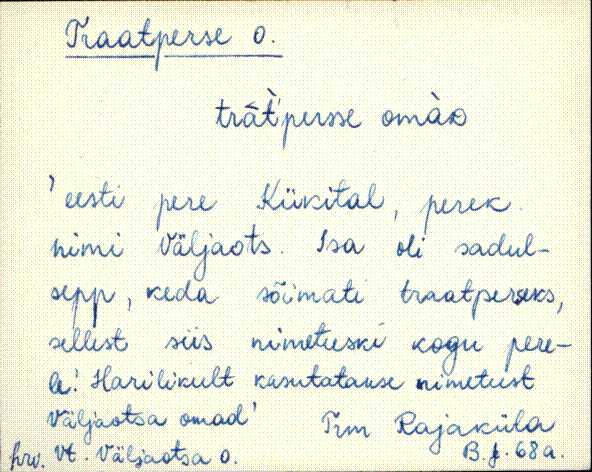 Traatperse o.
trà̂t'persse omàᴅ
'eesti pere Kükital, perek.
nimi Väljaots. Isa oli sadul-
sepp, keda sõimati traatperseks,
sellest siis nimetuski kogu pere-
le. Harilikult kasutatakse nimetust
Väljaotsa omad' Trm Rajaküla
hrv. Vt. Väljaotsa o. 68a.